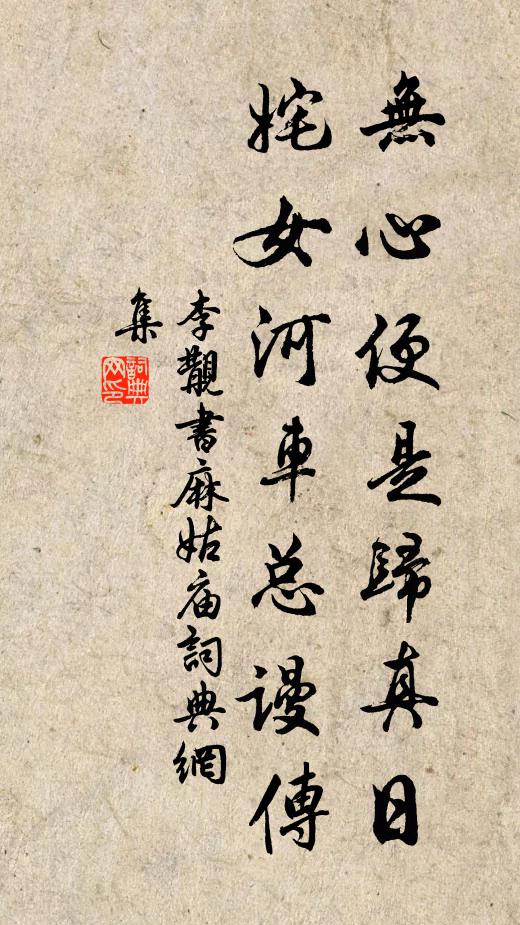 無心便是歸真日
姹女河車总謾傳
李覯書麻姑庙詞典網
集
詞典网印